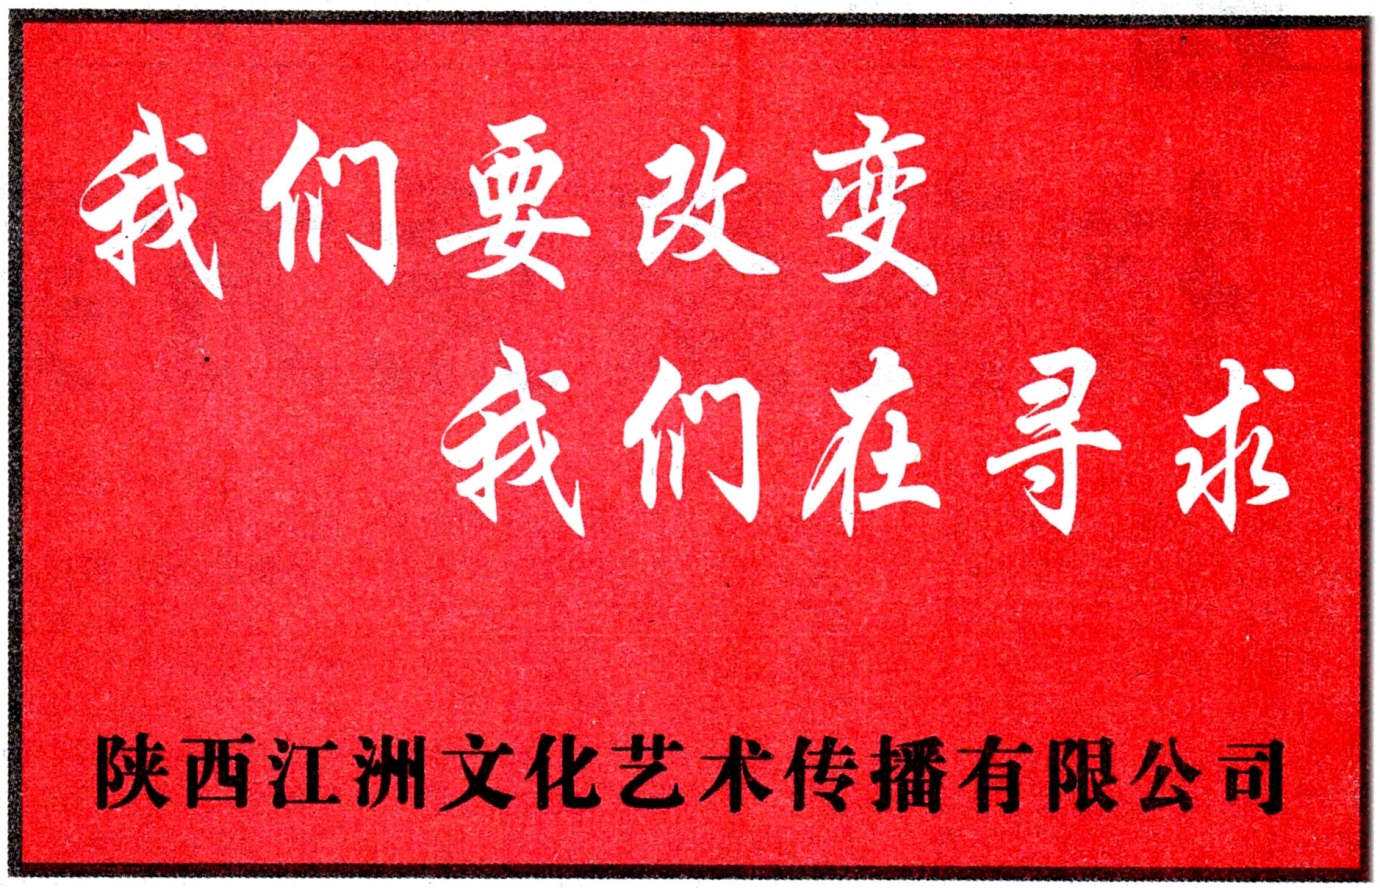 我们要改变
我们在寻求
陕西江洲文化艺术传播有限公司